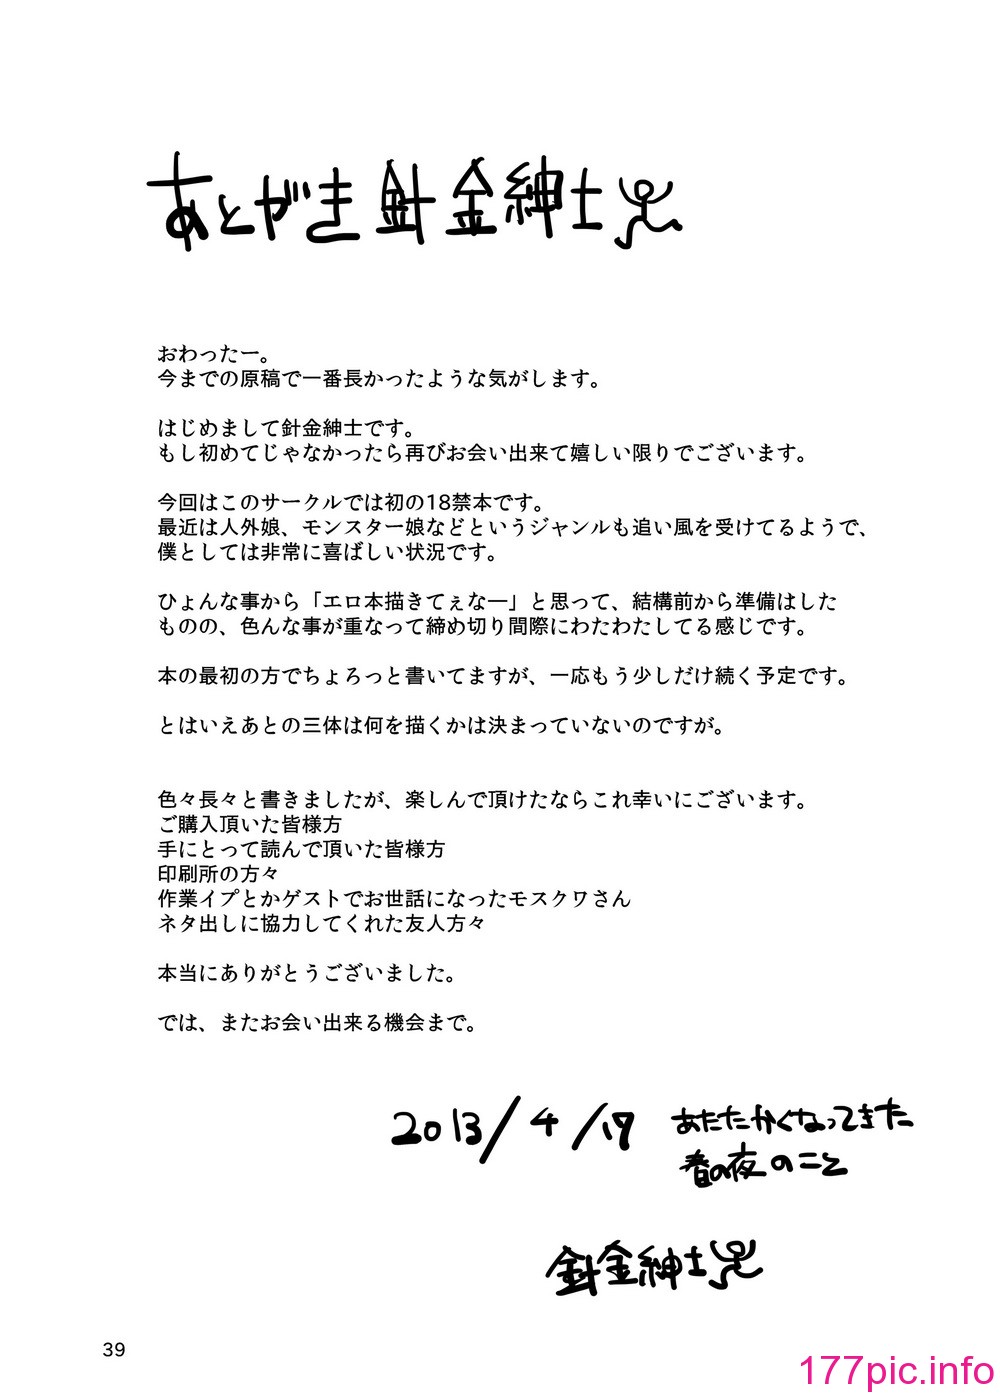 あとがき 針金紳士
おわったー。
今までの原稿で一番長かったような気がします。
はじめまして針金紳士です。
もし初めてじゃなかったら再びお会い出来て嬉しい限りでございます。
今回はこのサークルでは初の18禁本です。
最近は人外娘、モンスター娘などというジャンルも追い風を受けてるようで、
僕としては非常に喜ばしい状況です。
ひょんな事から「エロ本描きてぇなー」と思って、結構前から準備はした
ものの、色んな事が重なって締め切り間際にわたわたしてる感じです。
本の最初の方でちょろっと書いてますが、一応もう少しだけ続く予定です。
とはいえあとの三体は何を描くかは決まっていないのですが。
色々長々と書きましたが、楽しんで頂けたならこれ幸いにございます。
ご購入頂いた皆様方
手にとって読んで頂いた皆様方
印刷所の方々
作業イプとかゲストでお世話になったモスクワさん
ネタ出しに協力してくれた友人方々
本当にありがとうございました。
では、またお会い出来る機会まで。
2013/4/17 あたたかくなってきた
春の夜のこと
針金紳士
39
177pic.info